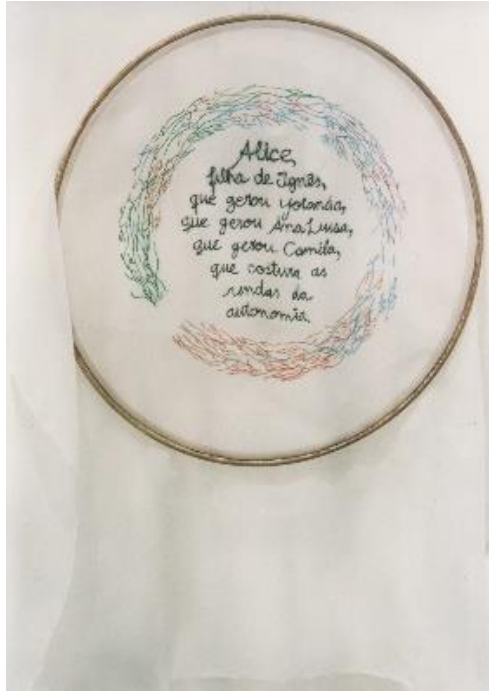 Alice,
filha de Ignês,
que gerou Yolanda,
que gerou Ana Luisa,
que gerou Camila,
que costura as
rendas da
autonomia.